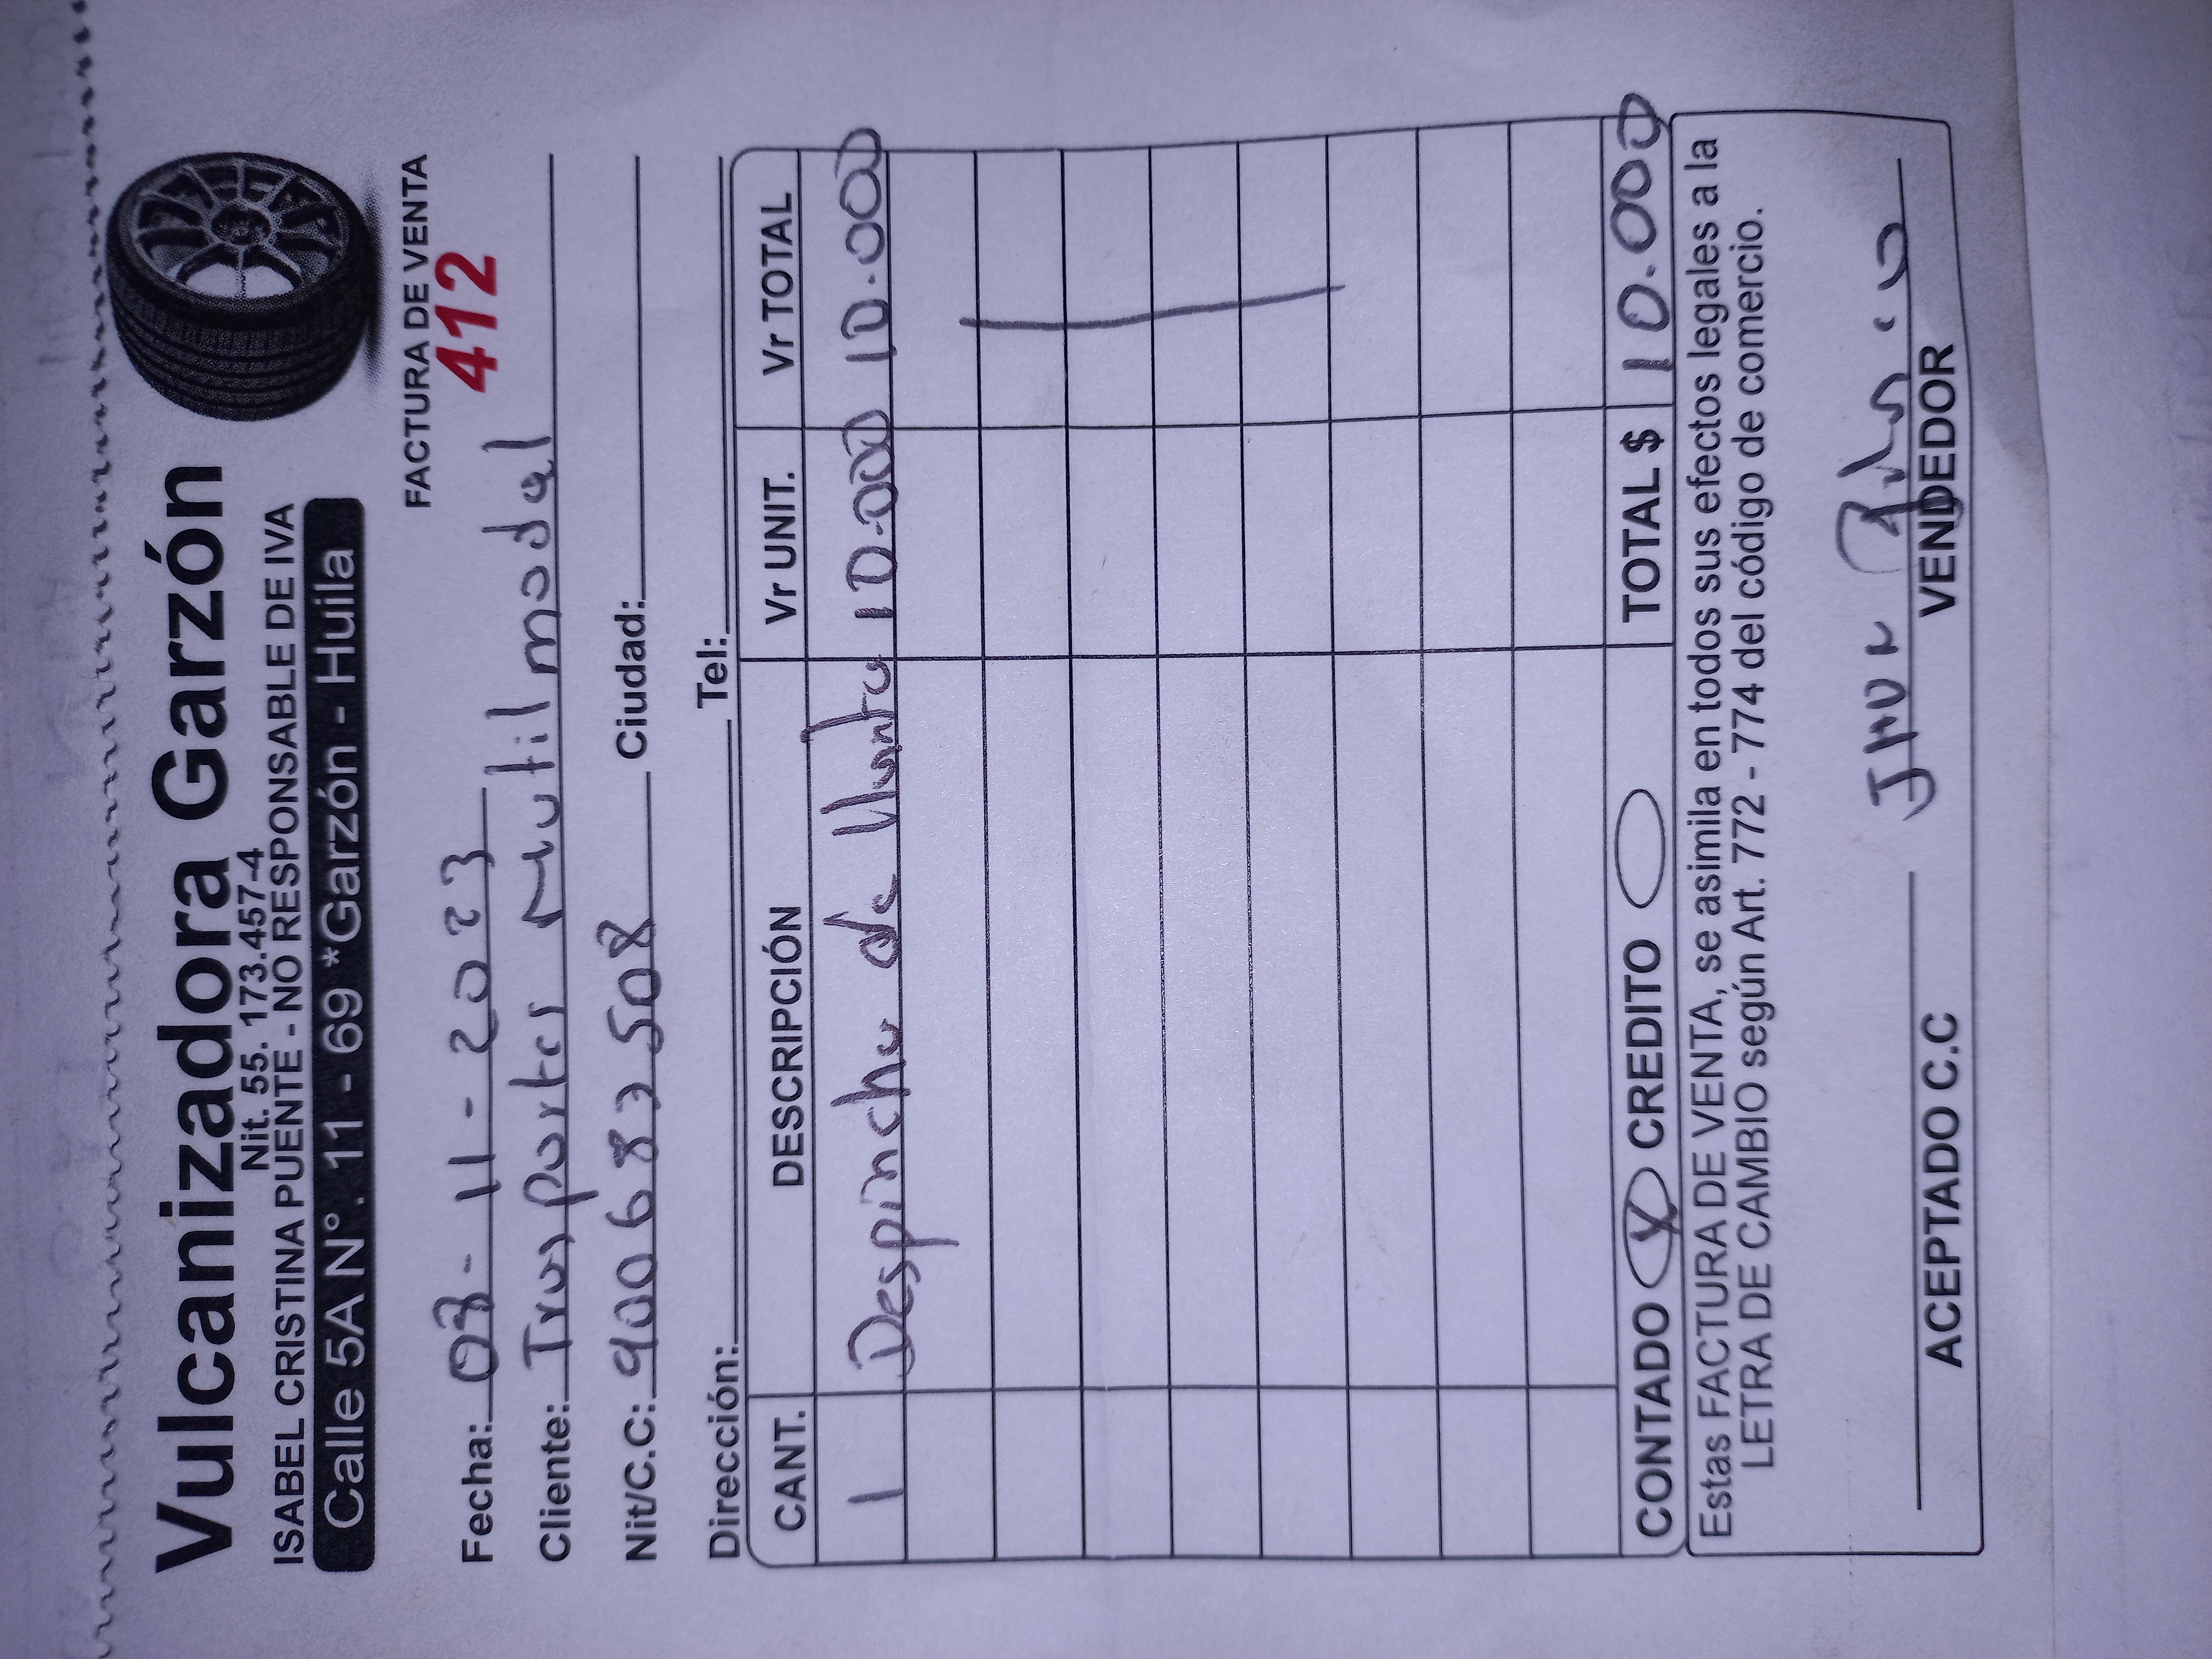 Vulcanizadora Garzón
Nit. 55. 173.457-4
ISABEL CRISTINA PUENTE - NO RESPONSABLE DE IVA
Calle 5A N°. 11 - 69 *Garzón - Huila
FACTURA DE VENTA
412
Fecha: 03-11-2023
Cliente: Trasportes Mutilmodal
Nit/C.C: 900683508 Ciudad:
Dirección: Tel:
CANT. DESCRIPCIÓN Vr UNIT. Vr TOTAL
1 Despinchu de llanta 10.000 10.000
CONTADO X CREDITO TOTAL $ 10.000
Estas FACTURA DE VENTA, se asimila en todos sus efectos legales a la
LETRA DE CAMBIO según Art. 772 - 774 del código de comercio.
ACEPTADO C.C VENDEDOR